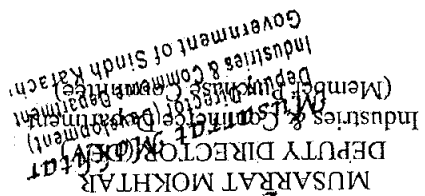 MUSARRAT MOKHTAR
DEPUTY DIRECTOR (DEV.)
Industries & Commerce Department
(Member Purchase Committee)
(Musarrat Mokhtar
Deputy Director (Development)
Industries & Commerce Department
Government of Sindh Karachi